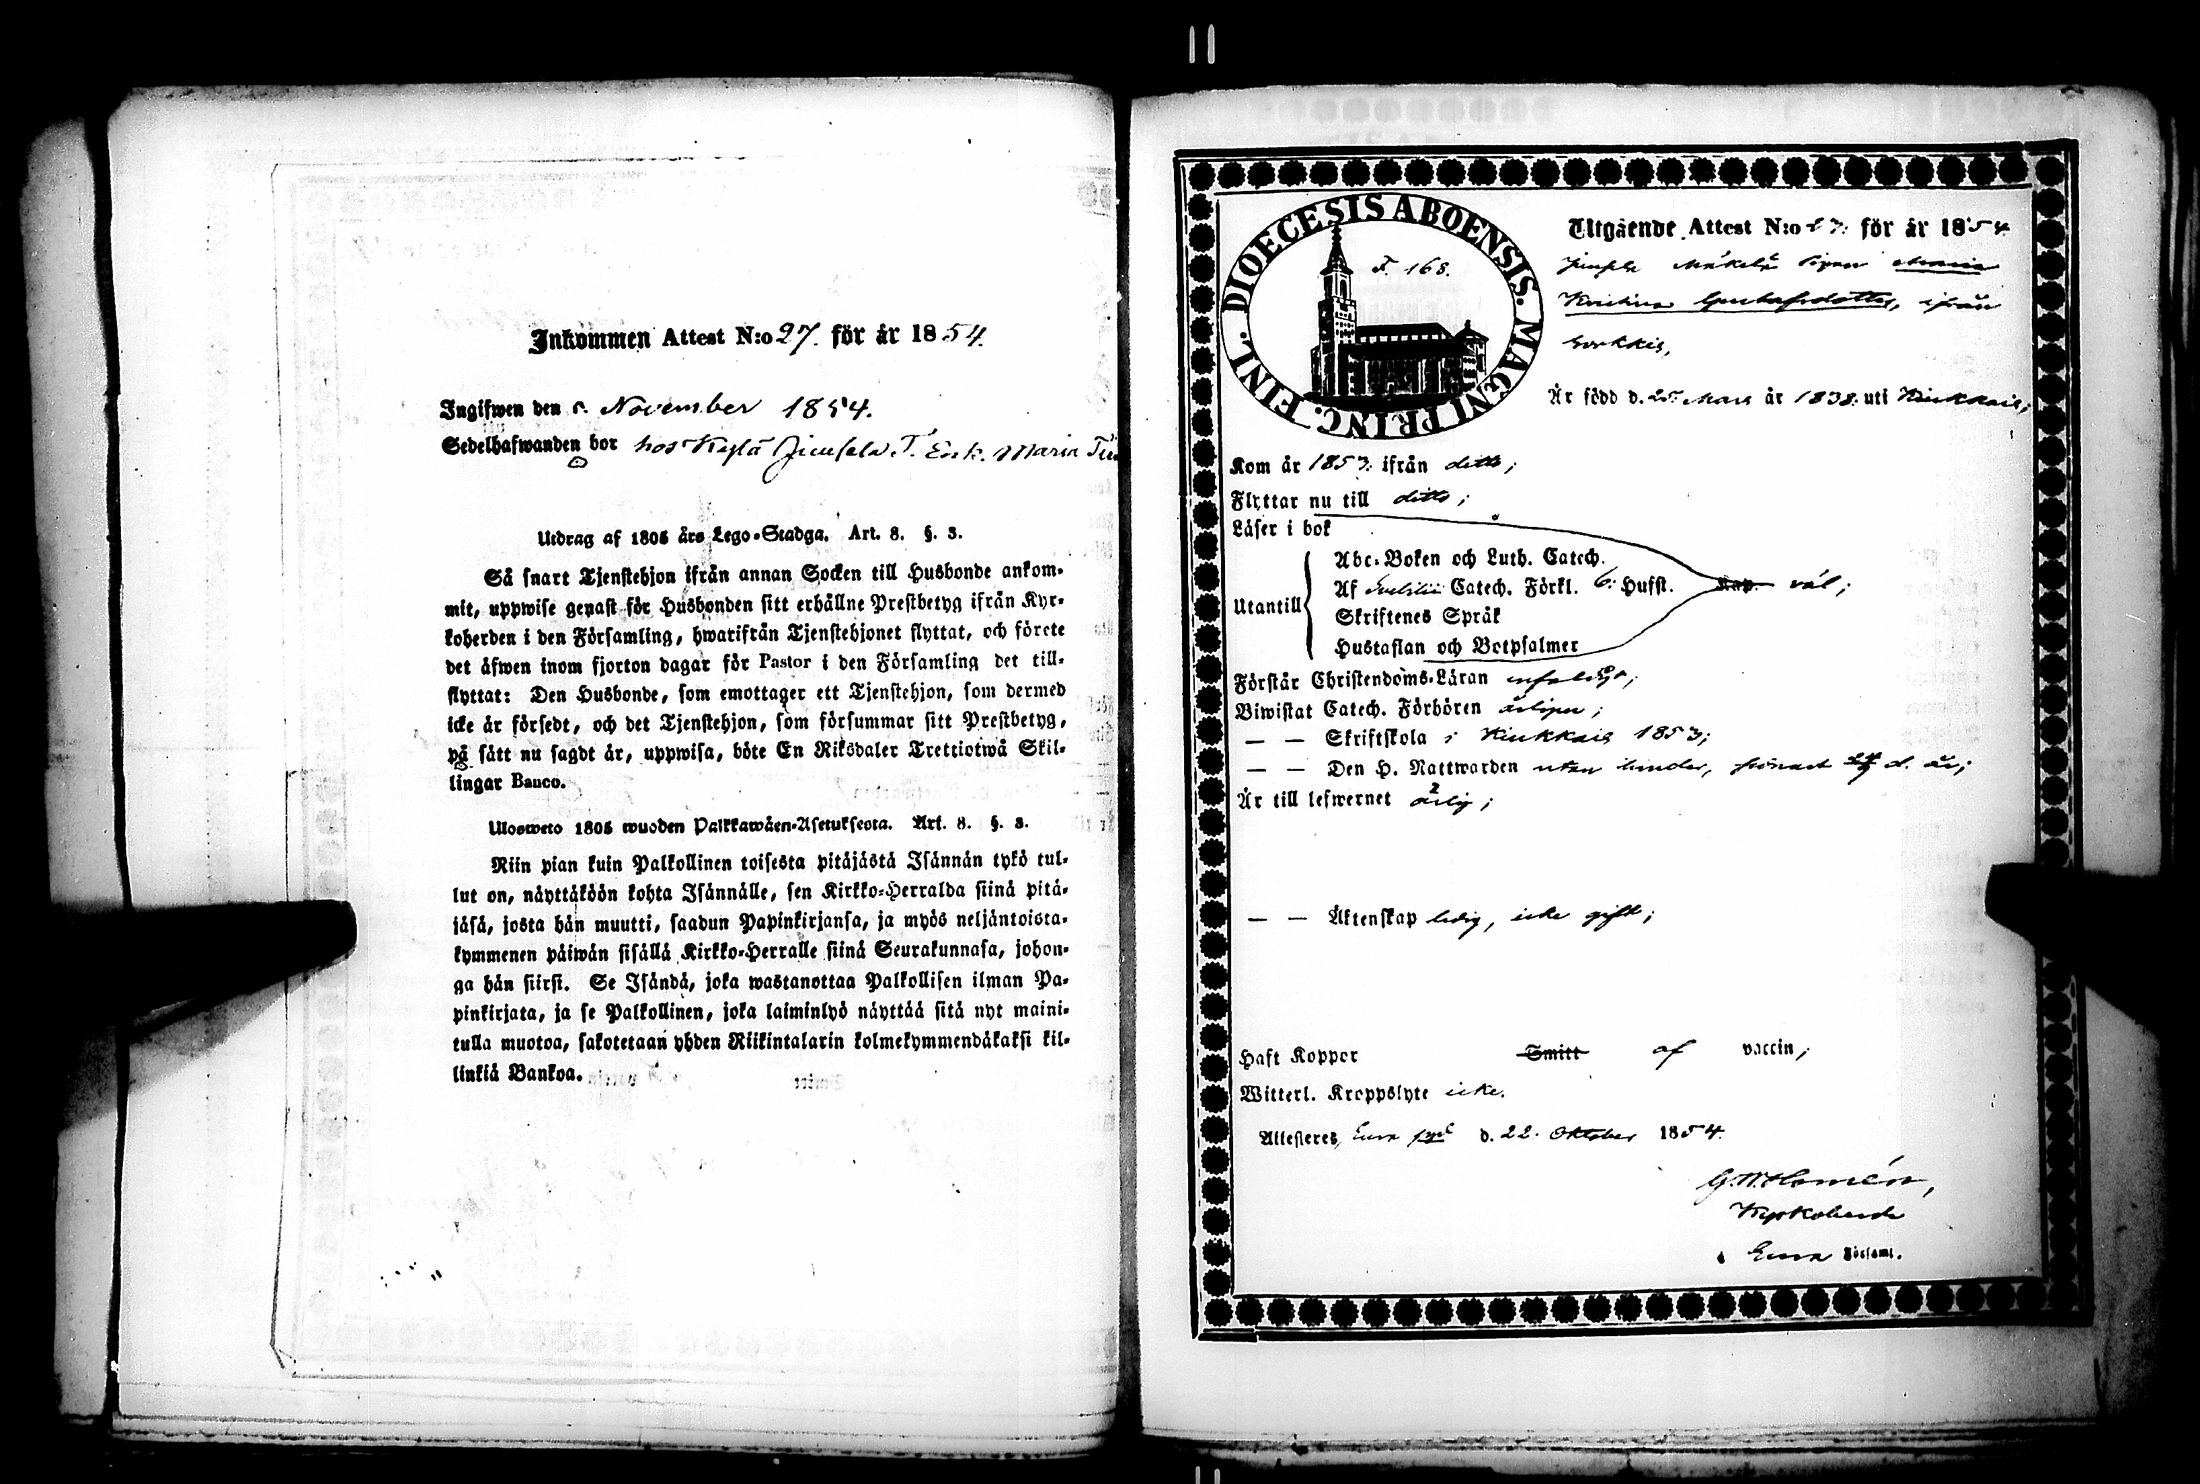 Inkommen Attest N:o 27. för år 1854.
Ingifwen den November 1854.
Sedelhafwanden bor hos Maria
Utdrag af 1805 års Lego-Stadga. Art. 8. §. 3.
Så snart Tjenstehjon ifrån annan Socken till Husbonde ankom-
mit, uppwise genast för Husbonden sitt erhållne Prestbetyg ifrån Kyr-
koherden i den Församling, hwarifrån Tjenstehjonet flyttat, och förete
det äfwen inom fjorton dagar för Pastor i den Församling det till-
flyttat: Den Husbonde, som emottager ett Tjenstehjon, som dermed
icke är försedt, och det Tjenstehjon, som försummar sitt Prestbetyg,
på sätt nu sagdt är, uppwisa, böte En Riksdaler Trettiotwå Skil-
lingar Banco.
Ulosweto 1805 wuoden Palkkawäen-Asetuksesta. Art. 8. §. 3.
Niin pian kuin Palkollinen toisesta pitäjästä Isännän tykö tul-
lut on, näyttäköön kohta Isännälle, sen Kirkko-Herralda siinä pitä-
jäsä, josta hän muutti, saadun Papinkirjansa, ja myös neljäntoista-
kymmenen päiwän sisällä Kirkko-Herralle siinä Seurakunnasa, johon-
ga hän siirsi. Se Isändä, joka wastanottaa Palkollisen ilman Pa-
pinkirjata, ja se Palkollinen, joka laiminlyö näyttää sitä nyt maini-
tulla muotoa, sakotetaan yhden Riikintalarin kolmekymmendäkaksi kil-
linkiä Bankoa.
DIOECESIS ABOENSIS. MAGNI PRINC. FINL.
F. 168.
Utgående Attest N:o 27. för år 1854
Mäkelä pigan Maria
Kristina Gustafsdotter, ifrån
Sorkkis,
Är född d. 25 Mars år 1838. uti Kiukkais;
Kom år 1853. ifrån ditto;
Flyttar nu till ditto;
Läser i bok
Abc-Boken och Luth. Catech.
Utantill
Af Svebilii Catech. Förkl. 6: Hufst. väl;
Skriftenes Språk
Hustaflan och Botpsalmer
Förstår Christendoms-Läran enfaldigt;
Biwistat Catech. Förhören årligen;
— — Skriftskola i Kiukkais 1853;
— — Den H. Nattwarden utan hinder, d. år;
Är till lefwernet ärlig;
— — Äktenskap ledig, icke gift;
Haft Koppor Smitt af vaccin;
Witterl. Kroppslyte icke.
Attesteres, Eura d. 22. Oktober 1854.
G. W. Homén,
Kyrkoherde
i Eura Församl.